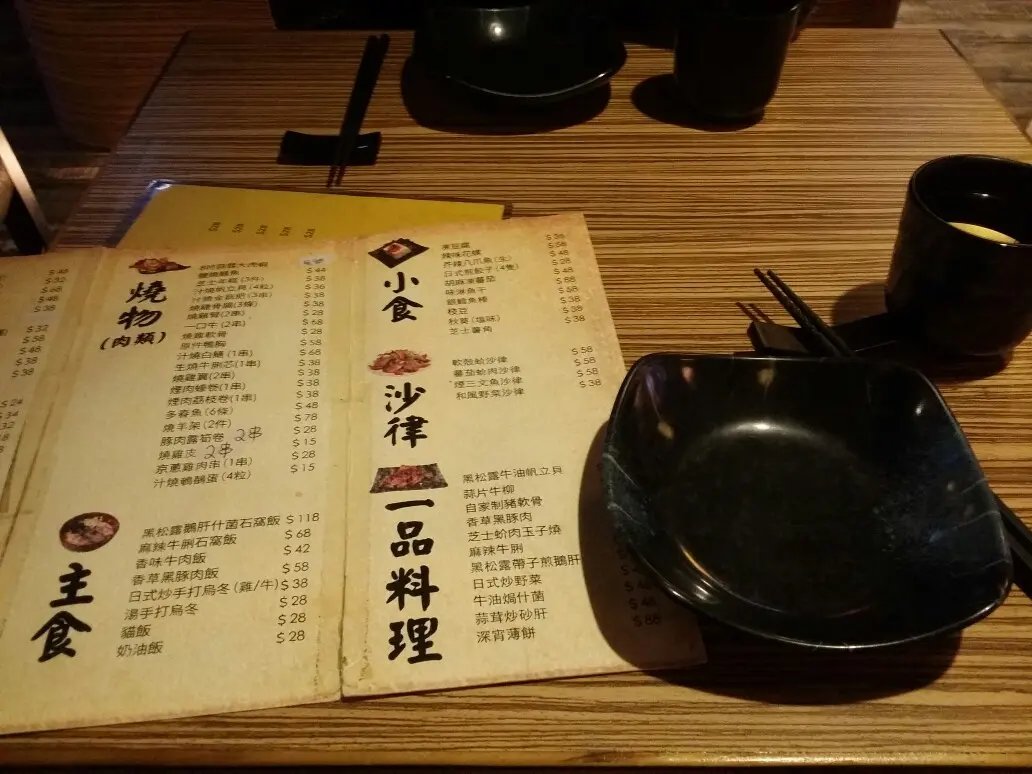 燒物
(肉類)
芝士年糕 (3件) $38
汁燒帆立貝 (4粒) $36
燒雞腎 (2串) $28
一口牛 (2串) $68
燒雞軟骨 $28
原件鴨胸 $58
汁燒白鱔 (1串) $68
生燒牛脷芯 (1串) $38
燒雞翼 (2串) $38
煙肉蟶卷 (1串) $38
煙肉荔枝卷 (1串) $38
多春魚 (6條) $48
燒羊架 (2件) $78
豚肉露筍卷 2串 $28
燒雞皮 2串 $15
京蔥雞肉串 (1串) $28
汁燒鵪鶉蛋 (4粒) $15
主食
黑松露鵝肝什菌石窩飯 $118
麻辣牛脷石窩飯 $68
香味牛肉飯 $42
香草黑豚肉飯 $58
日式炒手打烏冬 (雞/牛) $38
湯手打烏冬 $28
貓飯 $28
奶油飯 $28
小食
凍豆腐 $38
辣味花螺 $58
芥辣八爪魚 (生) $48
日式煎餃子 (4隻) $28
胡麻凍蕃茄 $48
味淋魚干 $88
銀鱈魚棒 $58
枝豆 $38
秋葵 (塩味) $58
芝士薯角 $38
沙律
軟殼蛤沙律 $58
蕃茄蚧肉沙律 $58
煙三文魚沙律 $58
和風野菜沙律 $38
一品料理
黑松露牛油帆立貝
蒜片牛柳
自家制豬軟骨
香草黑豚肉
芝士蚧肉玉子燒
麻辣牛脷
黑松露帶子煎鵝肝
日式炒野菜
牛油焗什菌
蒜茸炒砂肝
深宵薄餅 $88